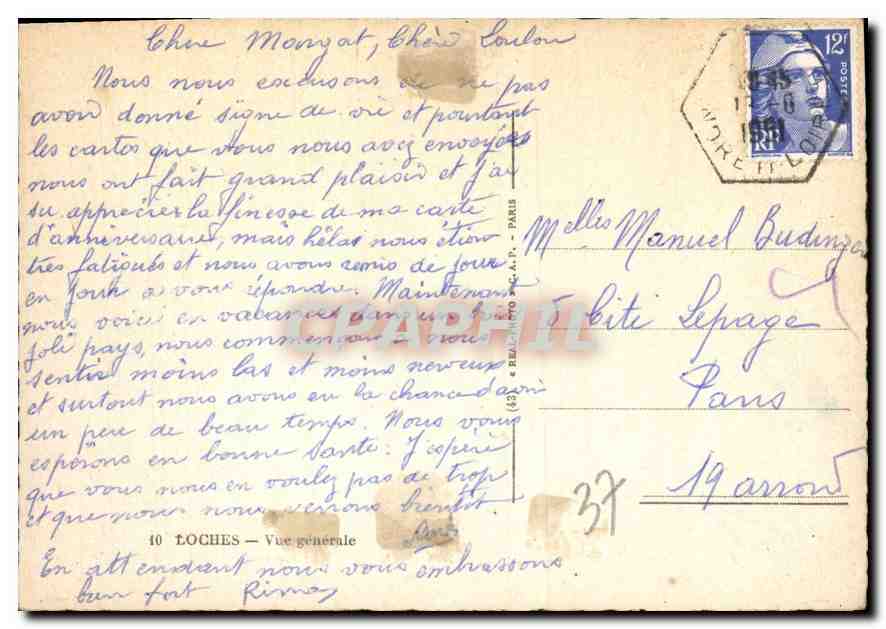 Chère Margat, Chère Loulou
Nous nous excusons de ne pas
avoir donné signe de vie et pourtant
les cartes que vous nous avez envoyées
nous ont fait grand plaisir et j'ai
su apprécier la finesse de ma carte
d'anniversaire, mais hélas nous étions
très fatigués et nous avons remis de jour
en jour à vous répondre. Maintenant
nous voici en vacances dans un
joli pays, nous commençons à nous
sentir moins las et moins nerveux
et surtout nous avons eu la chance d'avoir
un peu de beau temps. Nous vous
espérons en bonne santé. J'espère
que vous nous en voulez pas de trop
et que nous nous verrons bientôt.
10 LOCHES — Vue générale
En attendant nous vous embrassons
bien fort
12F
POSTE
RF
1961
INDRE ET LOIRE
Melles Manuel Budinger
5 Cité Lepage
Paris
19 arrond
37
(43) « REAL-PHOTO » C. A. P. - PARIS
CPAPHIL